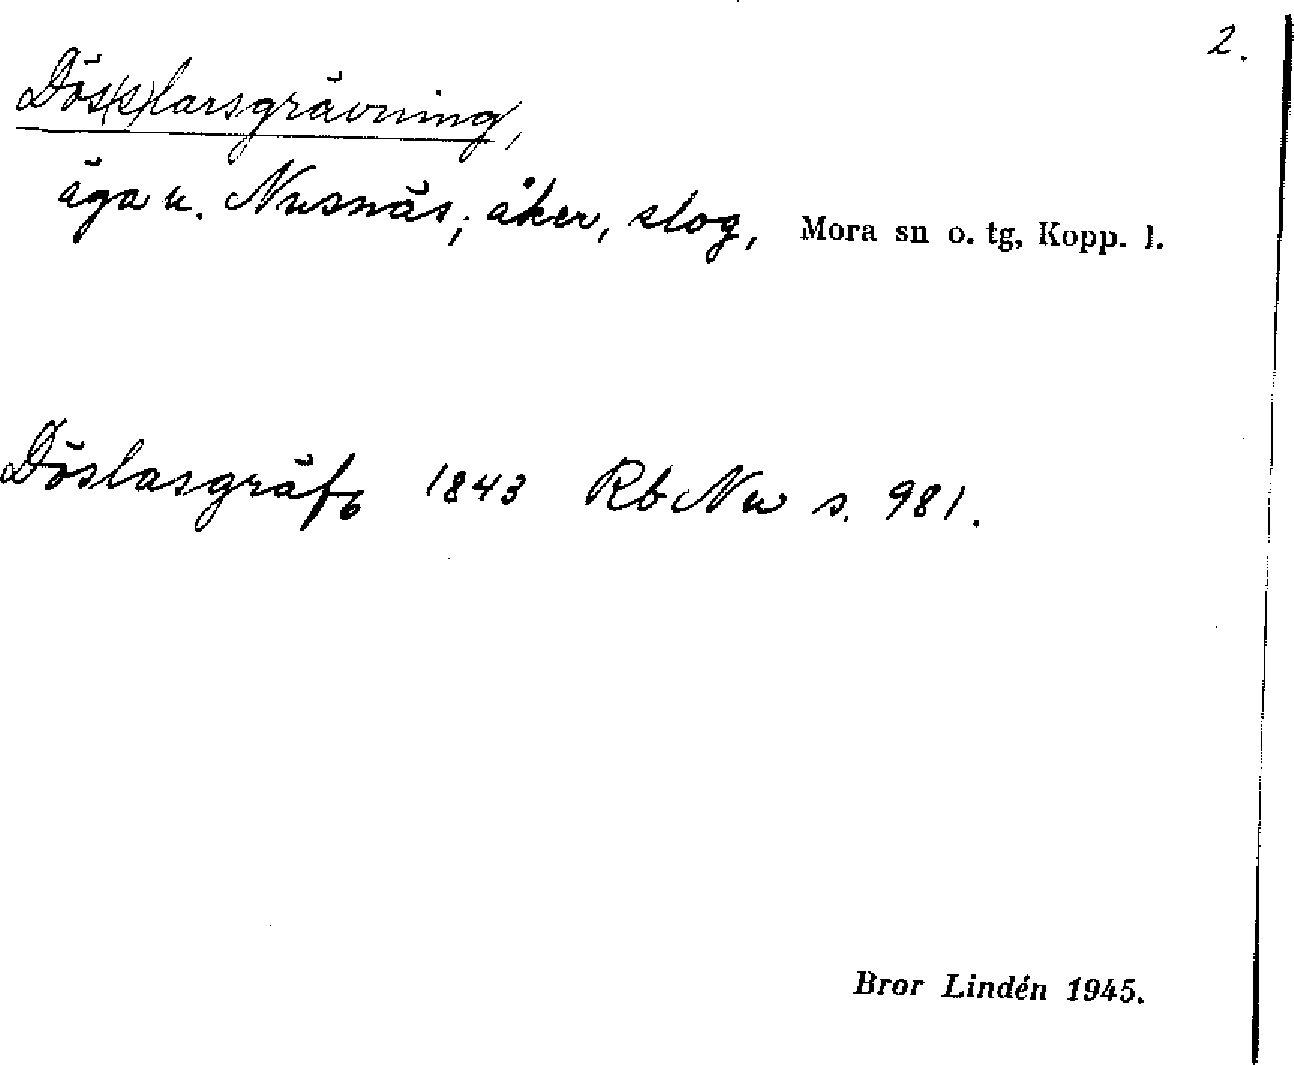 2.
Dös(s)larsgrävning,
äga u. Nusnäs; åker, slog, Mora sn o. tg, Kopp. l.
Döslasgräfn 1843 Rb Nu s. 981.
Bror Lindén 1945.